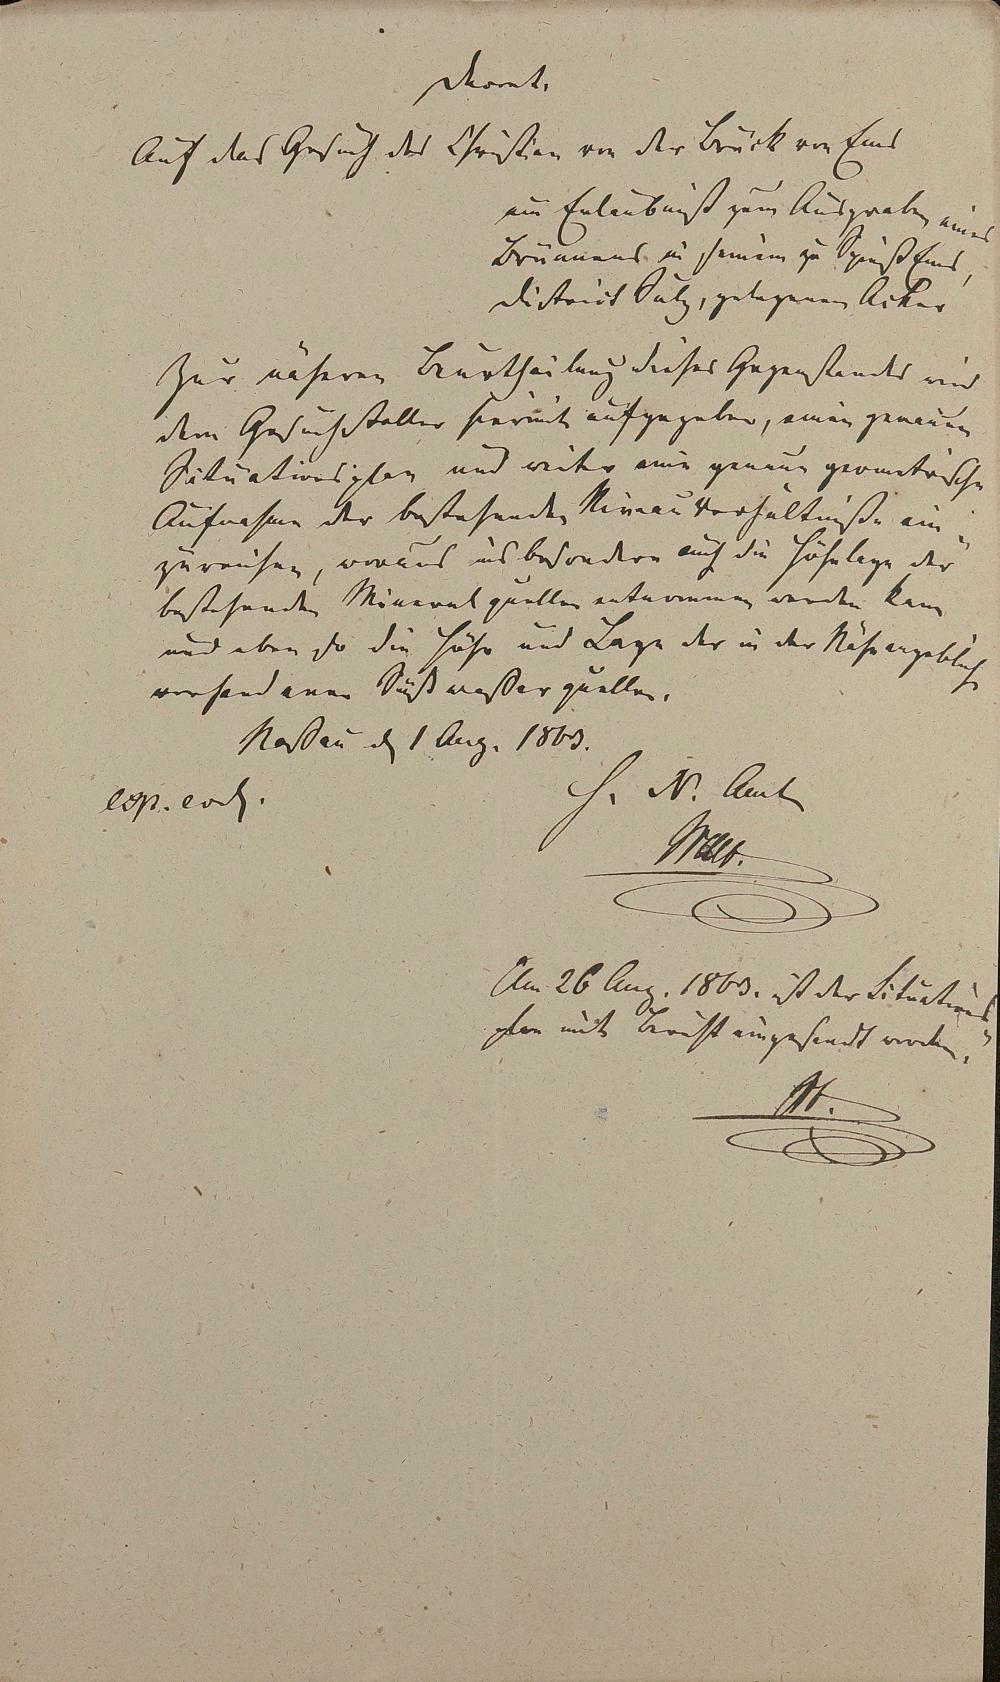 Decret.
Auf das Gesuch des Christian von der Brück von Ems
um Erlaubniß zum Ausgraben eines
Brunnens in seinem zu Spieß Ems,
District Sulz, gelegenen Acker
Zur näheren Beurtheilung dieses Gegenstandes wird
dem Gesuchsteller hiermit aufgegeben, einen genauen
Situationsplan und weiter eine genaue geometrische
Aufnahme der bestehenden Niveauverhältniße ein-
zureichen, woraus insbesondere auch die Höhelage der
bestehenden Mineralquellen entnommen werden kann
und eben so die Höhe und Lage der in der Nähe angeblich
vorhandenen Süßwasserquellen.
Nassau d 1 Aug. 1863.
exp. eod.
H. N. Amt
Am 26 Aug. 1863. ist der Situations-
plan mit Bericht eingesandt worden.